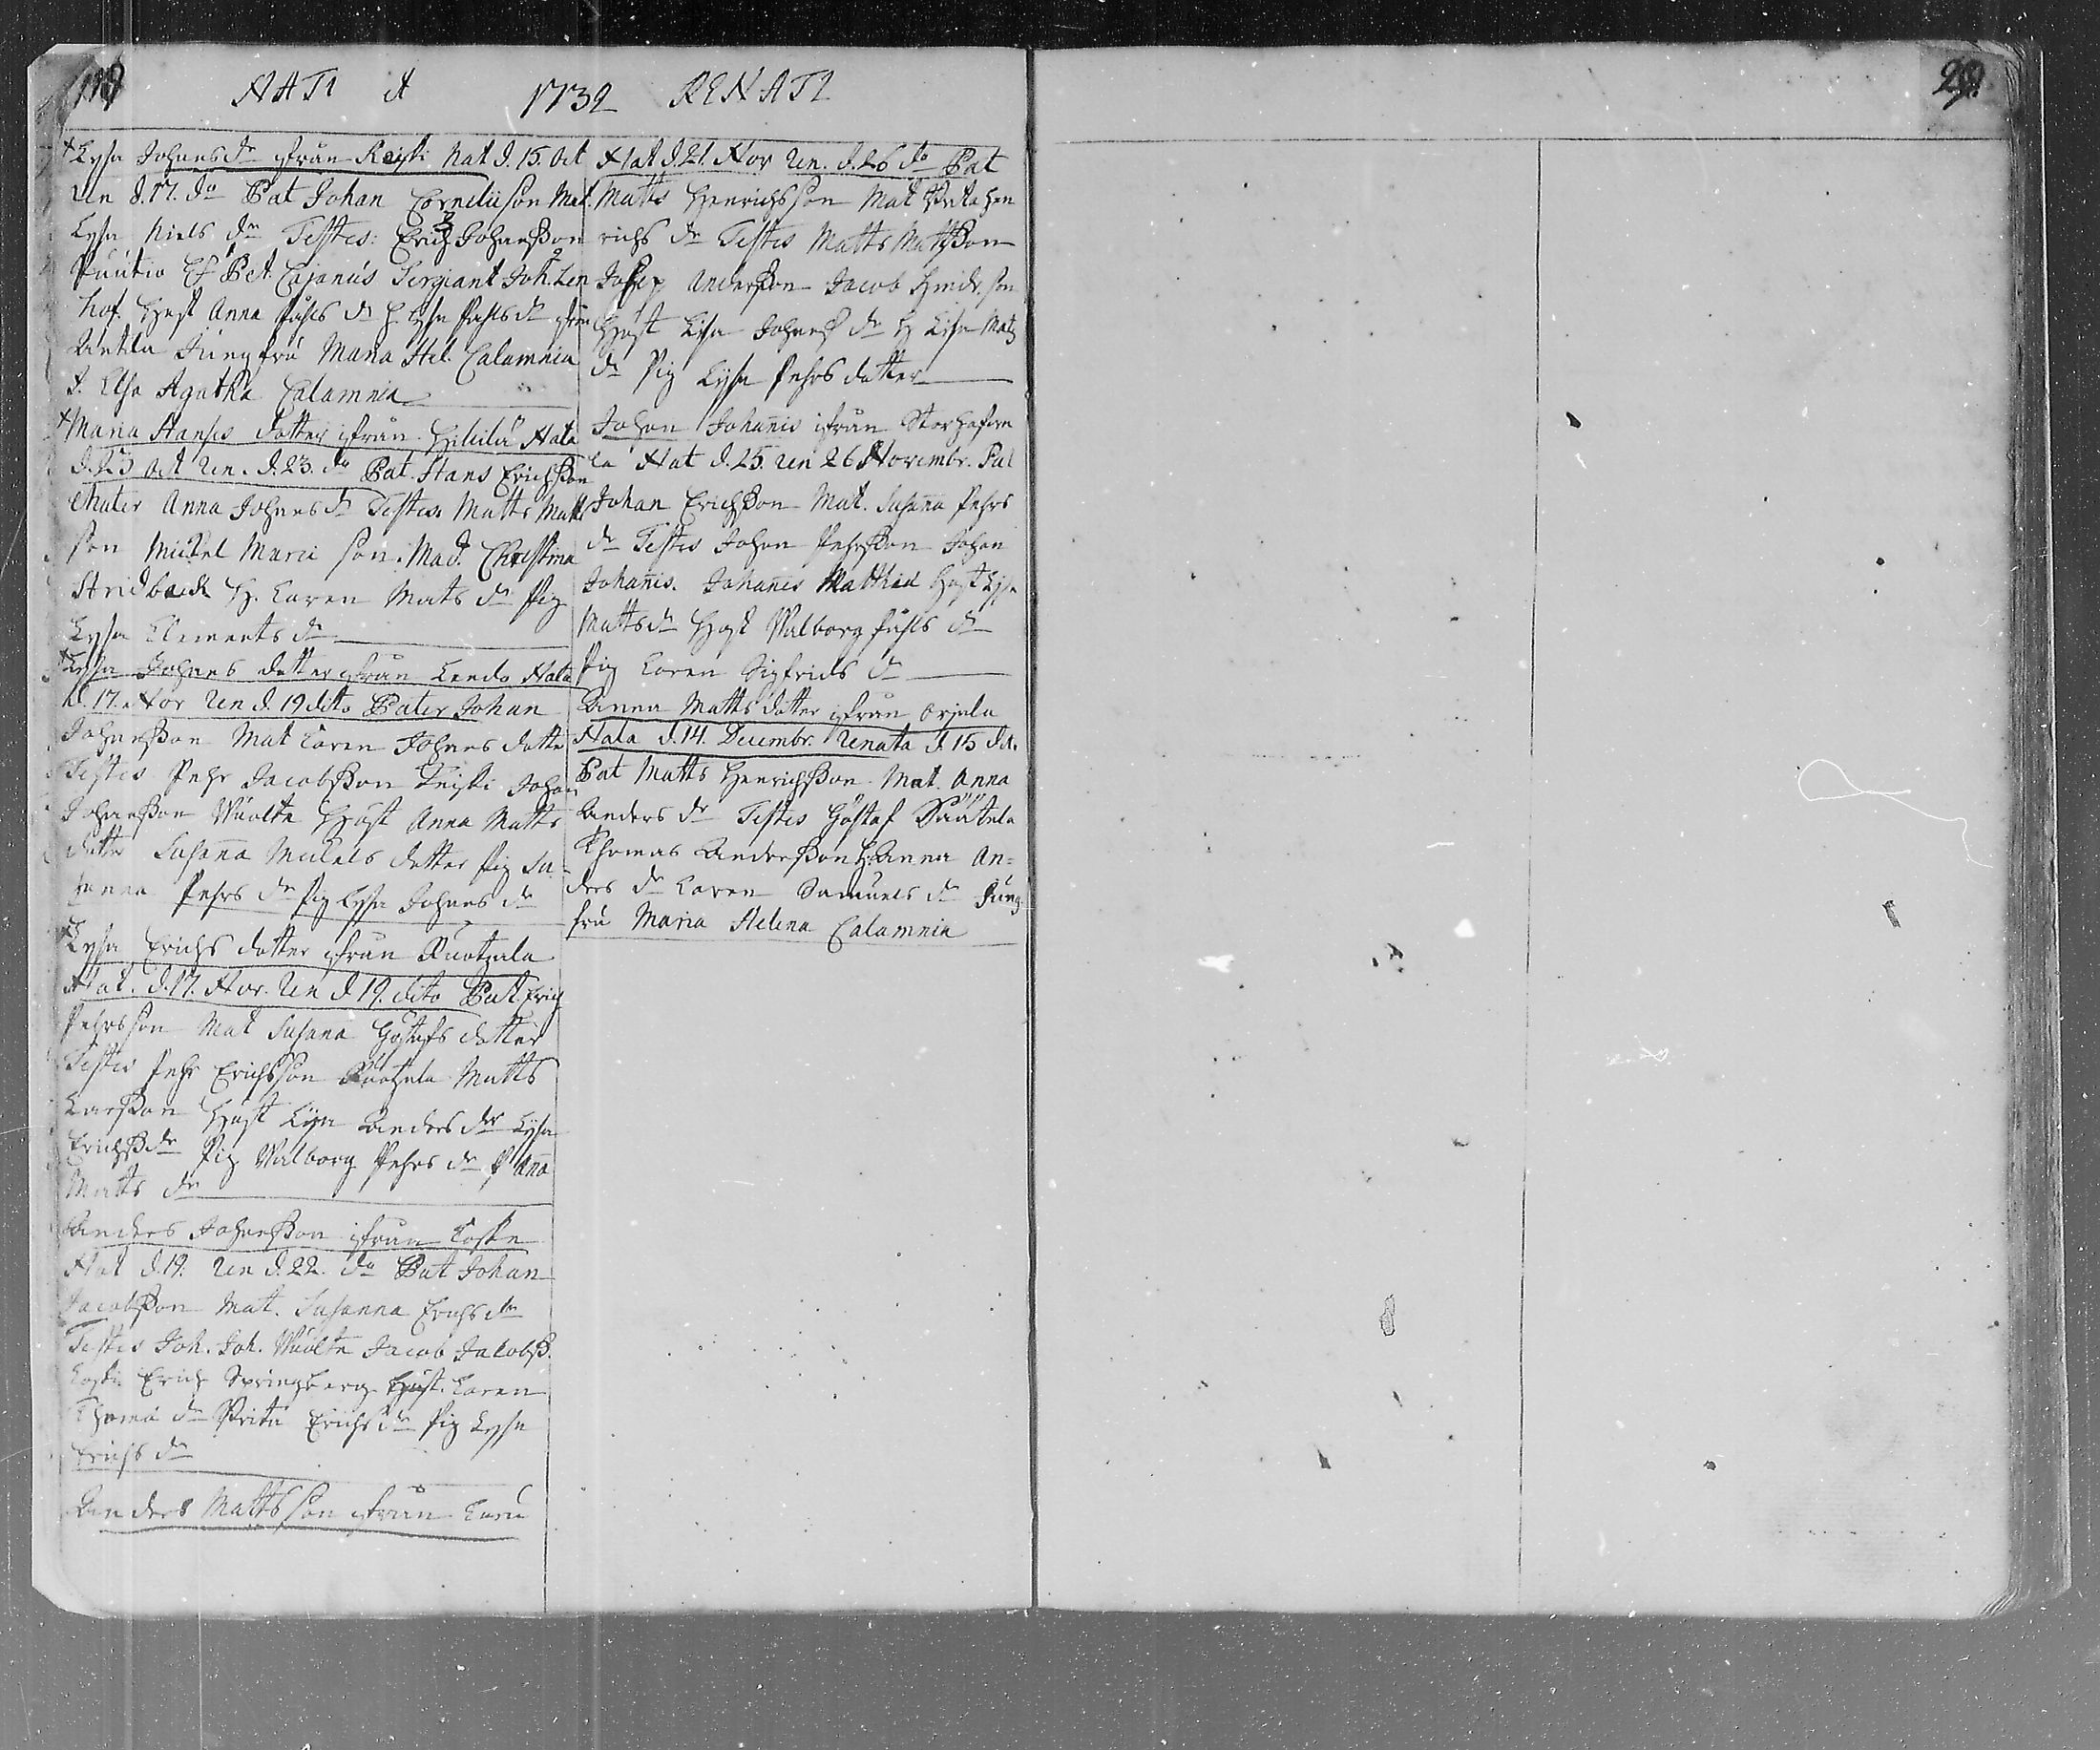 NATI et 1732 RENATI
29.
Lysa Johans dr ifrån Keiski Nat d. 15. Oct
Ren d. 17. do Pat Johan Corneliison Mat.
Lysa Niels dr Testes: Erich Johansson
Puutio Ef Pet Cajanus Sergiant Joh. Len
hof. Hust Anna Påhls dr H. Lysa Påhls dr ifrån
Antila Jungfru Maria Hel. Calamnia
J. Elsa Agatha Calamnia
Maria Hanses dotter ifrån Hihilä Nata
d. 23 Oct Ren. d. 23. do Pat. Hans Erichsson
Mater Anna Johans dr Testes. Matts Matts
son Michel Marci son. Mad. Christina
Stridbeck H. Caren Mats dr Pig
Lysa Clements dr
Lysa Johans dotter ifrån Leedo Nata
d. 17. Nov Ren d. 19 dito Pater Johan
Johansson Mat Caren Johans dotter
Testes Pehr Jacobsson Keiski Johan
Johansson Wuolta Hust Anna Matts
dotter Susanna Michels dotter Pig Su-
sanna Pehrs dr Pig Lysa Johans dr
Lysa Erichs dotter ifrån Ruotzala
Nat. d. 17. Nov. Ren d 19. dito Pat. Erich
Pehrsson Mat Susana Göstafs dotter
Testes Pehr Erichsson Ruotzala Matts
Larsson Hust Lisa Anders dr Lysa
Erichs dr Pig Walborg Pehrs dr P Anna
Matts dr
Anders Johansson ifrån Coske
Nat d. 19. Ren d. 22. do Pat Johan
Jacobsson Mat. Susanna Erichs dr
Testes Joh. Joh. Wuolta Jacob Jacobss.
Coski Erich Springberg Hust. Caren
Thoma dr Brita Erichs dr Pig Lysa
Erichs dr
Anders Mattsson ifrån
Nat d. 21. Nov Ren. d. 26 do Pat
Matts Henrichsson Mat Brita Hen
richs dr Testes Matts Mattsson
Josep Andersson Jacob Hindr. son
Hust Lisa Johans dr H Lisa Mats
dr Pig Lysa Pehrs dotter
Johan Johannis ifrån Storhafwa
la Nat d. 25. Ren 26 Novembr. Pat
Johan Erichsson Mat. Susanna Pehrs
dr Testes Johan Pehrsson Johan
Johannis. Johannes Matthiæ Hust Lysa
Matts dr Hust Walborg Påhls dr
Pig Caren Sigfrids dr
Anna Matts dotter ifrån Orjala
Nata d. 14. Decembr. Renata d. 15 do.
Pat Matts Henrichsson Mat. Anna
Anders dr Testes Göstaf Päätala
Thomas Andersson H: Anna An=
ders dr Caren Samuels dr Jung
fru Maria Helena Calamnia